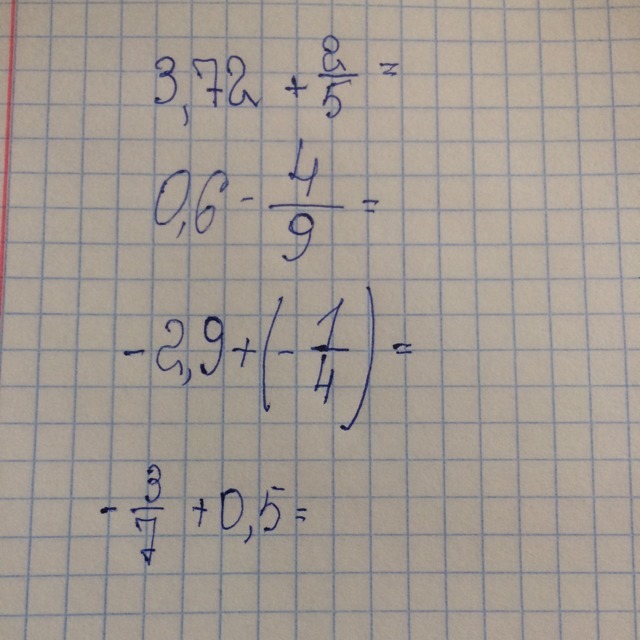 3,72 + 2/5 =
0,6 - 4/9 =
-2,9 + (-1/4) =
-3/7 + 0,5 =